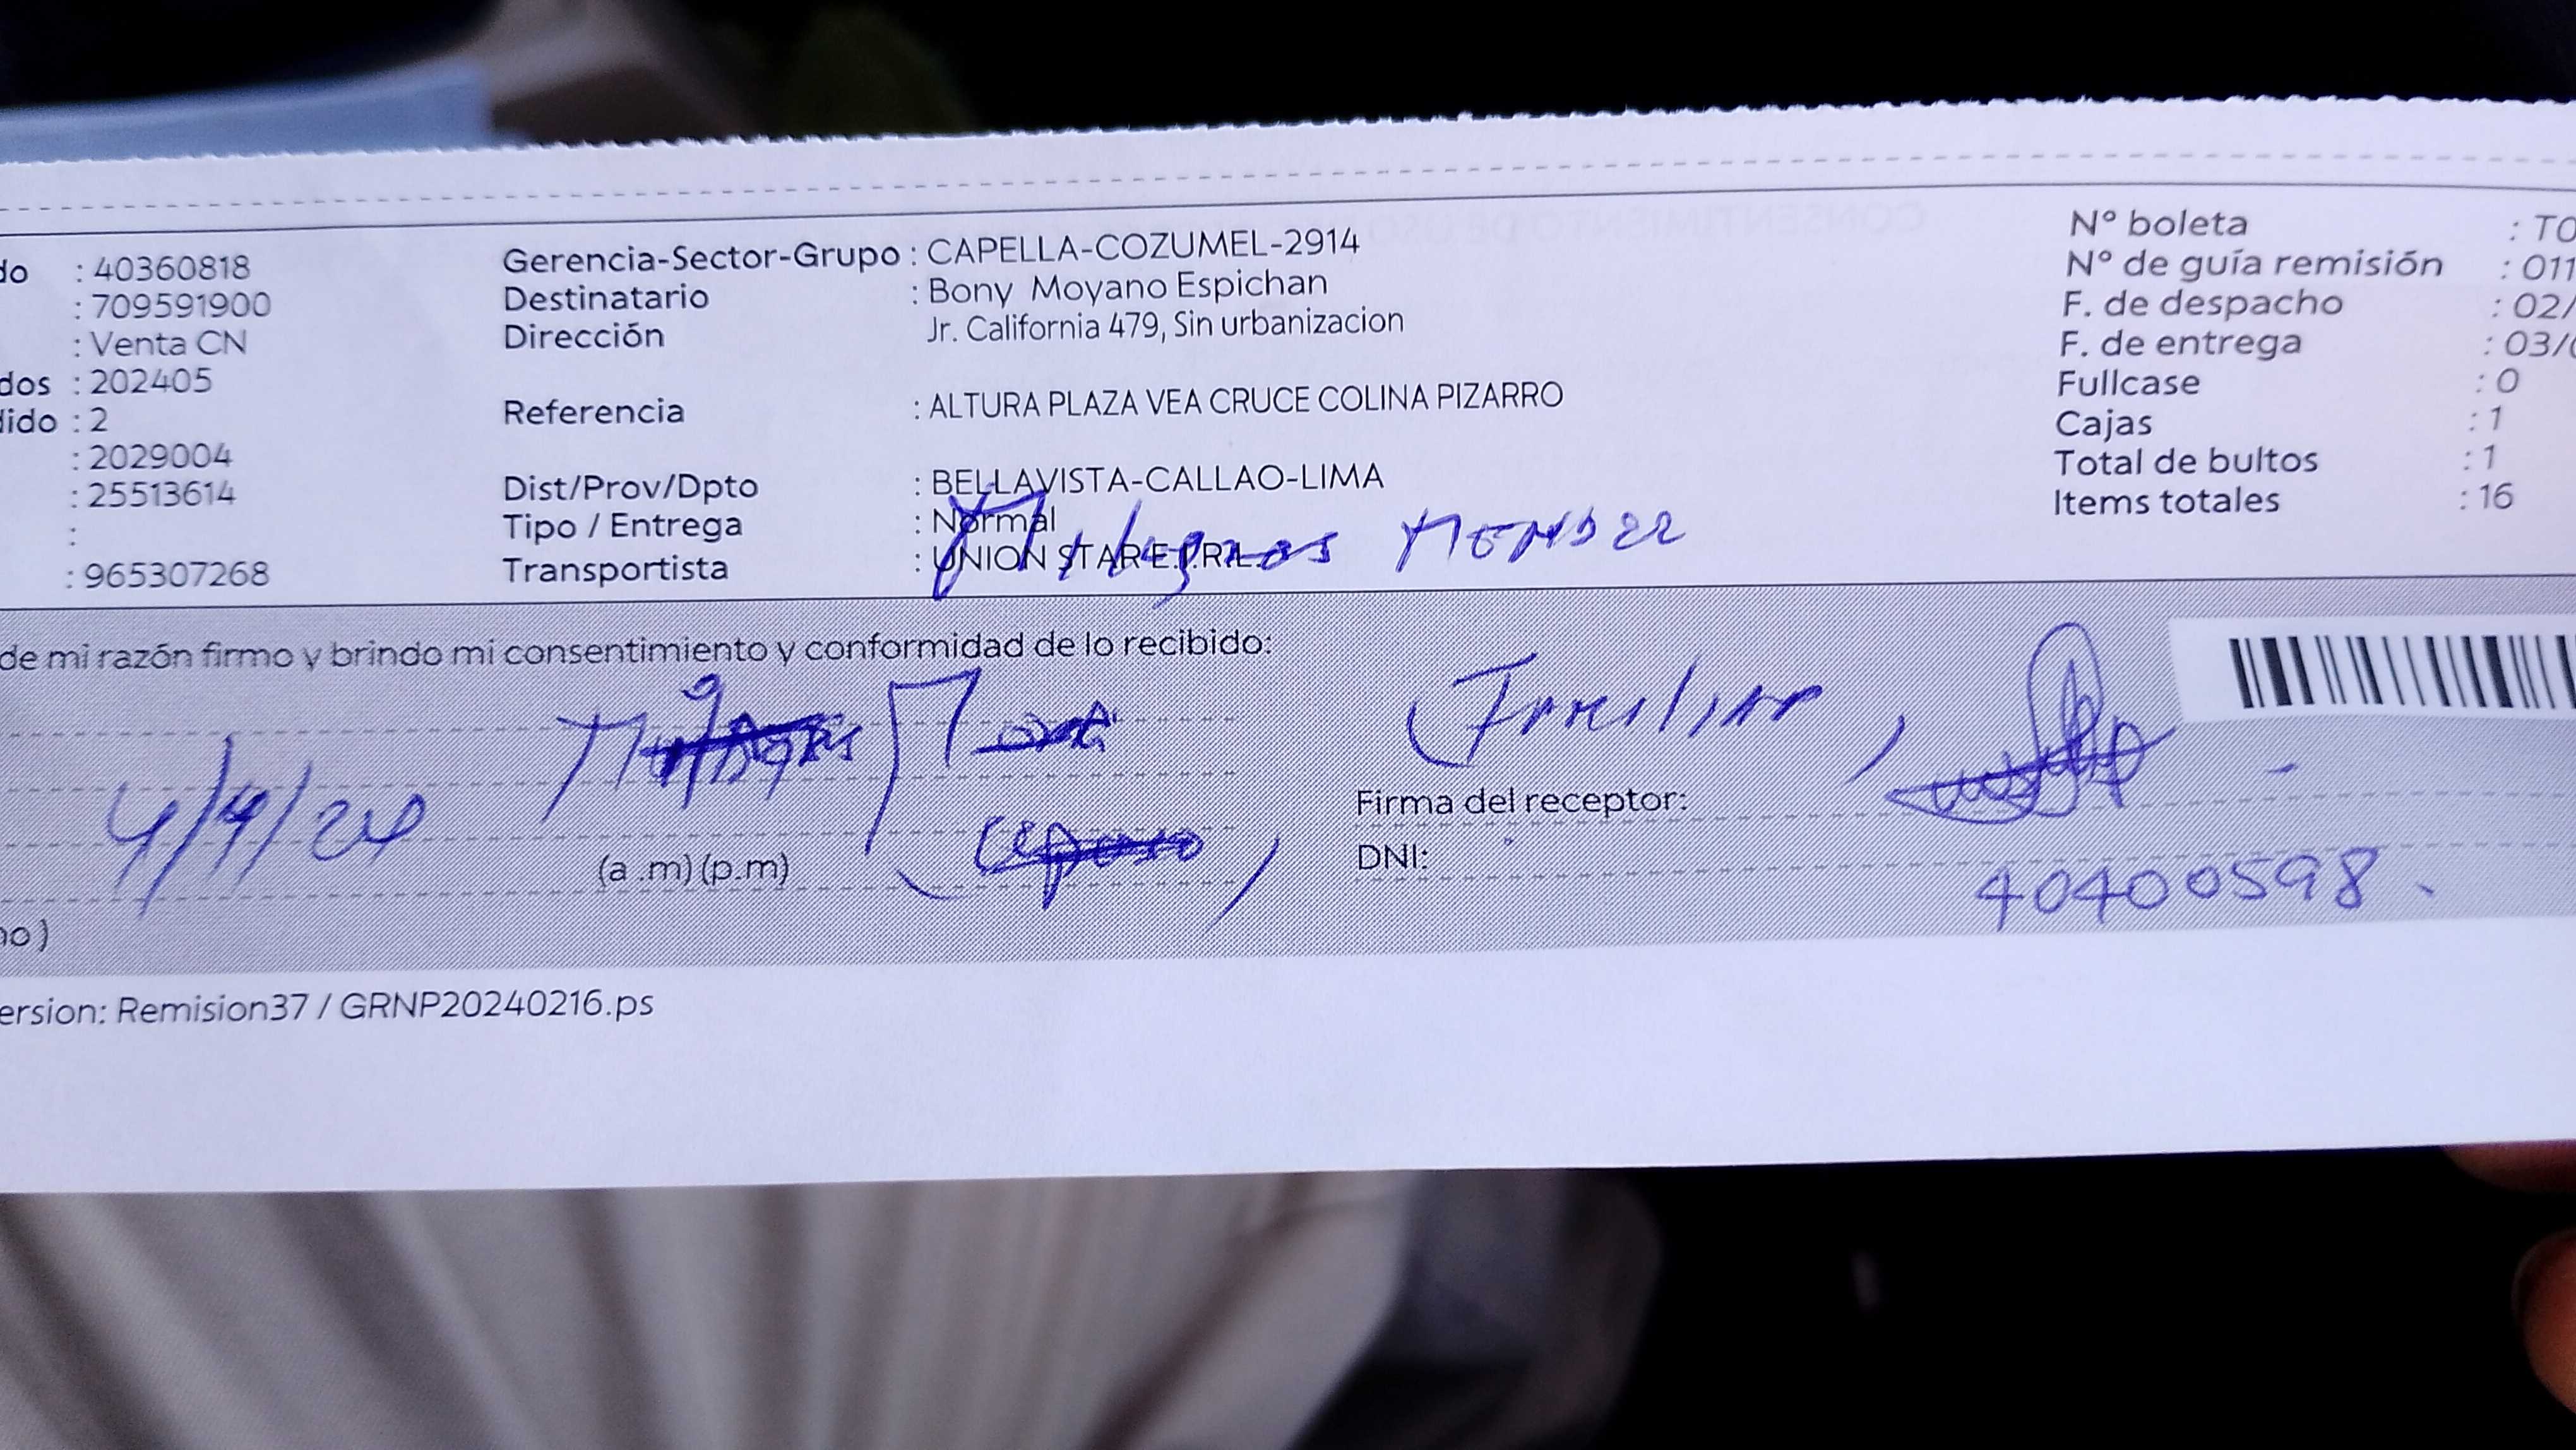 do : 40360818 Gerencia-Sector-Grupo : CAPELLA-COZUMEL-2914 N° boleta : T0
: 709591900 Destinatario : Bony Moyano Espichan N° de guía remisión : 011
: Venta CN Dirección Jr. California 479, Sin urbanizacion F. de despacho : 02/
dos : 202405 F. de entrega : 03/0
dido : 2 Referencia : ALTURA PLAZA VEA CRUCE COLINA PIZARRO Fullcase : 0
: 2029004 Cajas : 1
: 25513614 Dist/Prov/Dpto : BELLAVISTA-CALLAO-LIMA Total de bultos : 1
: Tipo / Entrega : Normal Items totales : 16
: 965307268 Transportista : UNION STAR E.I.R.L.
de mi razón firmo y brindo mi consentimiento y conformidad de lo recibido:
4/4/24
Firma del receptor:
(a .m) (p.m) DNI: 40400598
no)
ersion: Remision37 / GRNP20240216.ps